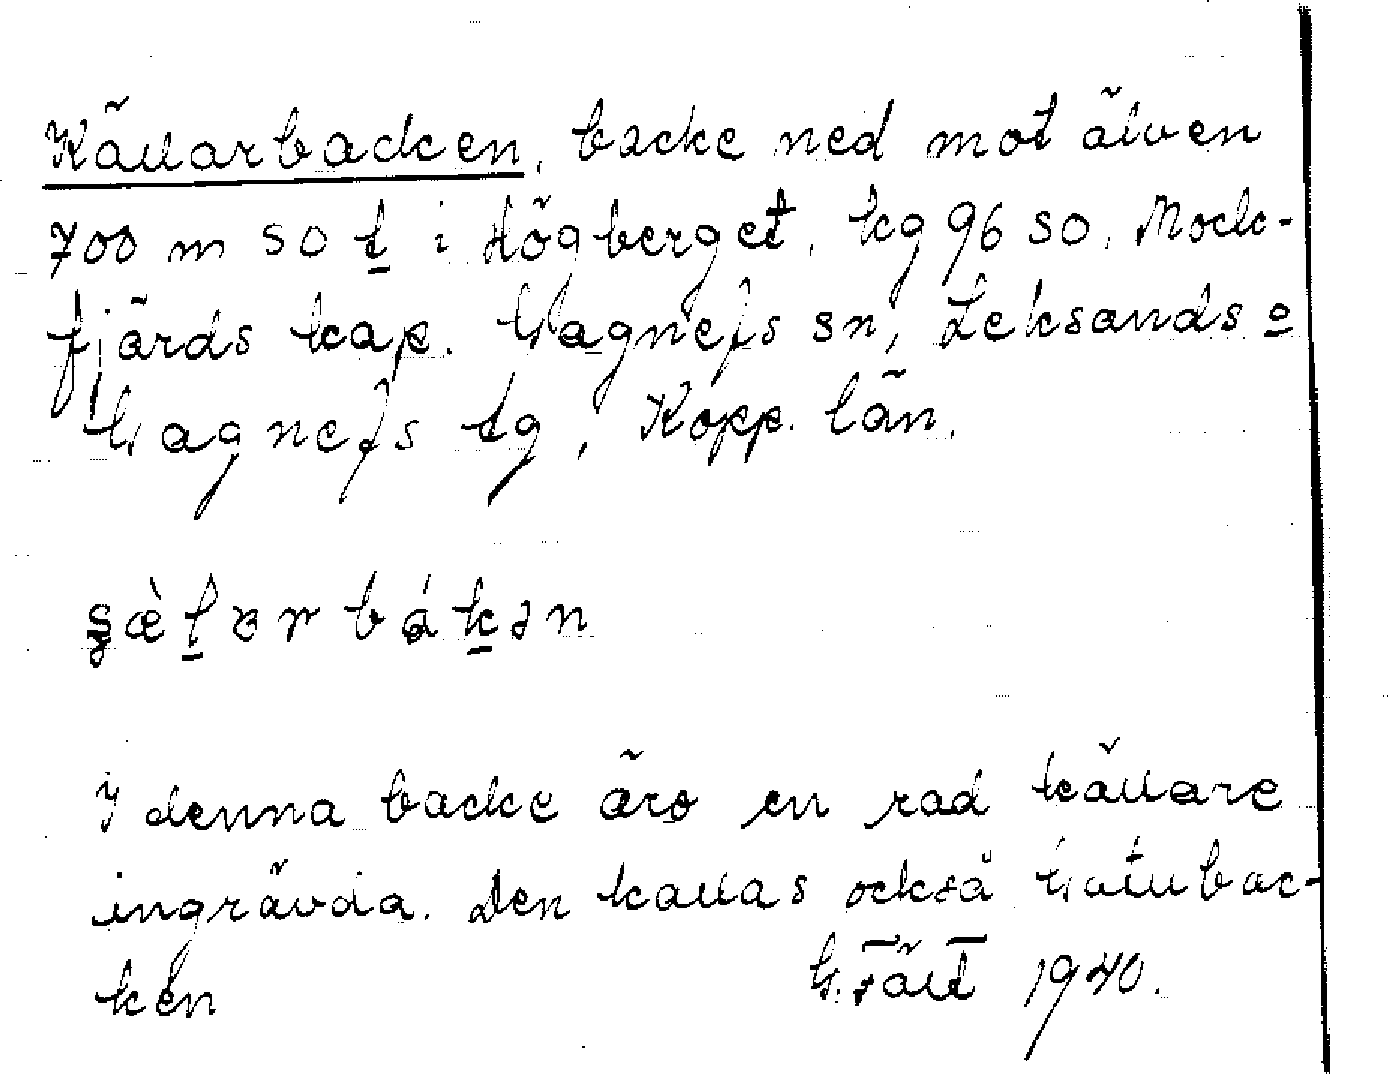 Källarbacken, backe ned mot älven
700 m SO t i Högberget, kg 96 SO, Mock-
fjärds kap. Gagnefs sn, Leksands o
Gagnefs tg, Kopp. län.
bákən
I denna backe äro en rad källare
ingrävda. Den kallas också Gatubac-
ken
G. Fält 1940.